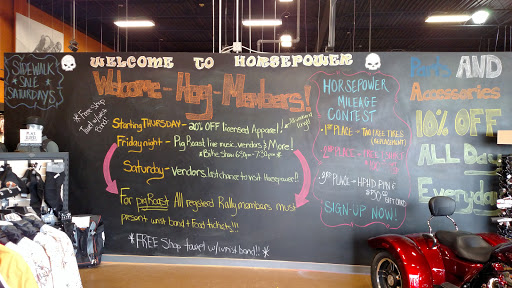 WELCOME TO HORSEPOWER
SIDEWALK
* SALE *
SATURDAYS
* Free Shop
Towel w/
Welcome - Hog - Members!
Starting THURSDAY - 20% OFF licensed Apparel!
Friday night - Pig Roast live music, vendors & More!
* Bike Show 6:30pm - 7:30pm *
Saturday - Vendors, last chance to visit Horsepower!!
For pig Roast All registered Rally members must
present wrist band & Food tickets!!!
* FREE Shop towel w/ wrist band!! *
HORSEPOWER
MILEAGE
CONTEST
1ST PLACE - TWO FREE TIRES
2ND PLACE -
3RD PLACE - HPHD PIN &
$50.00 GIFT CARD
SIGN-UP NOW!
Parts AND
Accessories
10% OFF
ALL Day
Everyday